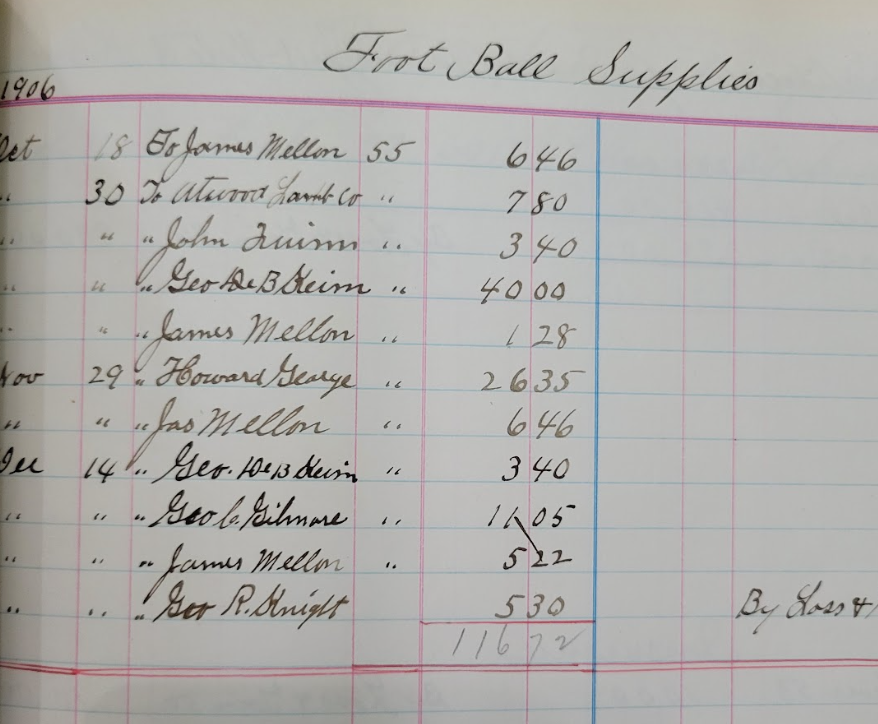 Foot Ball Supplies
1906
Oct 18 To James Mellon 55 6 46
" 30 To Atwood Lamb Co " 7 80
" " " John Quinn " 3 40
" " " Geo De B Keim " 40 00
" " " James Mellon " 1 28
Nov 29 " Howard George " 26 35
" " " Jas Mellon " 6 46
Dec 14 " Geo. De B Keim " 3 40
" " " Geo C. Gilmore " 11 05
" " " James Mellon " 5 22
" " " Geo R. Knight 5 30 By Loss &
116 72